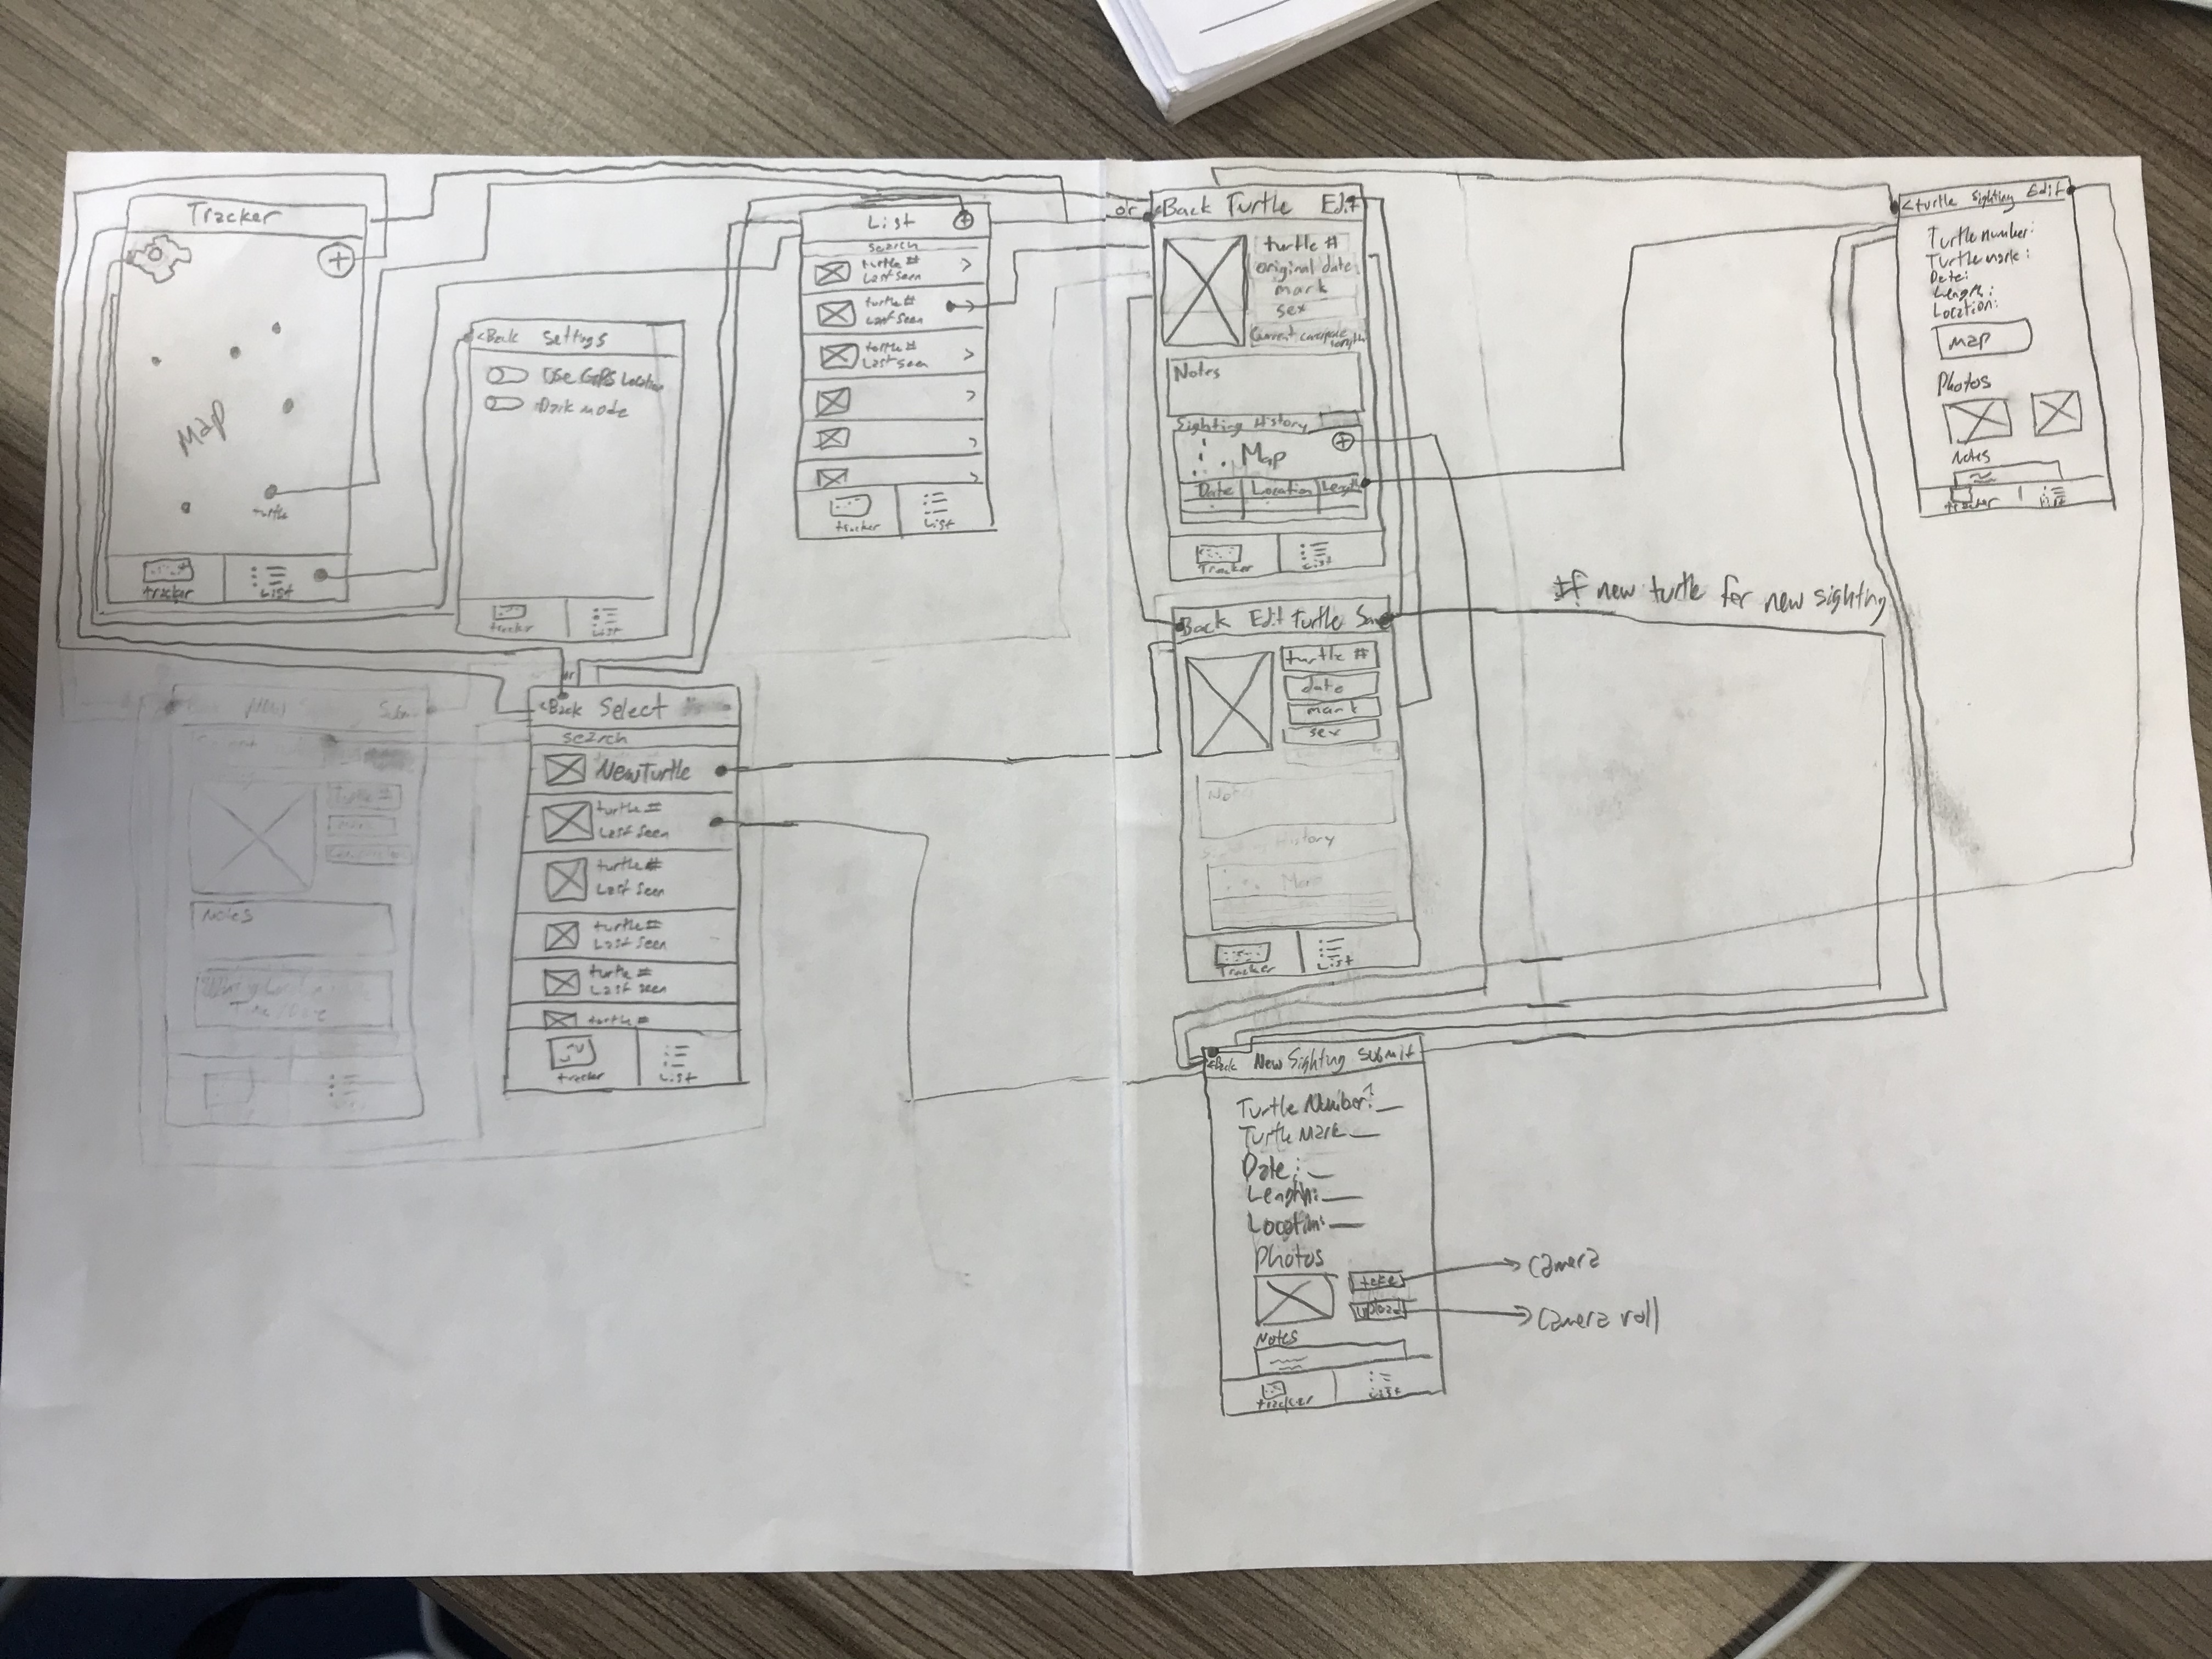 Tracker
+
Map
turtle
tracker
List
<Back Settings
Use GPS Location
Dark mode
tracker
List
List +
search
turtle #
Last seen >
turtle #
Last seen >
turtle #
Last seen >
>
>
>
tracker
List
or
<Back Turtle Edit
turtle #
original date
mark
sex
Current carapace length
Notes
Sighting History
+
Map
Date Location Length
Tracker
List
<turtle Sighting Edit
Turtle number:
Turtle mark:
Date:
Length:
Location:
Map
Photos
Notes
tracker
List
If new turtle for new sighting
Back Edit Turtle Save
turtle #
date
mark
sex
Notes
History
Map
Tracker
List
or
<Back Select
search
New Turtle
turtle #
Last seen
turtle #
Last seen
turtle #
Last seen
turtle #
Last seen
turtle #
tracker
List
Turtle #
Notes
<Back New Sighting Submit
Turtle Number:
Turtle Mark
Date:
Length:
Location:
Photos
take
upload
Camera
Camera roll
Notes
tracker
List